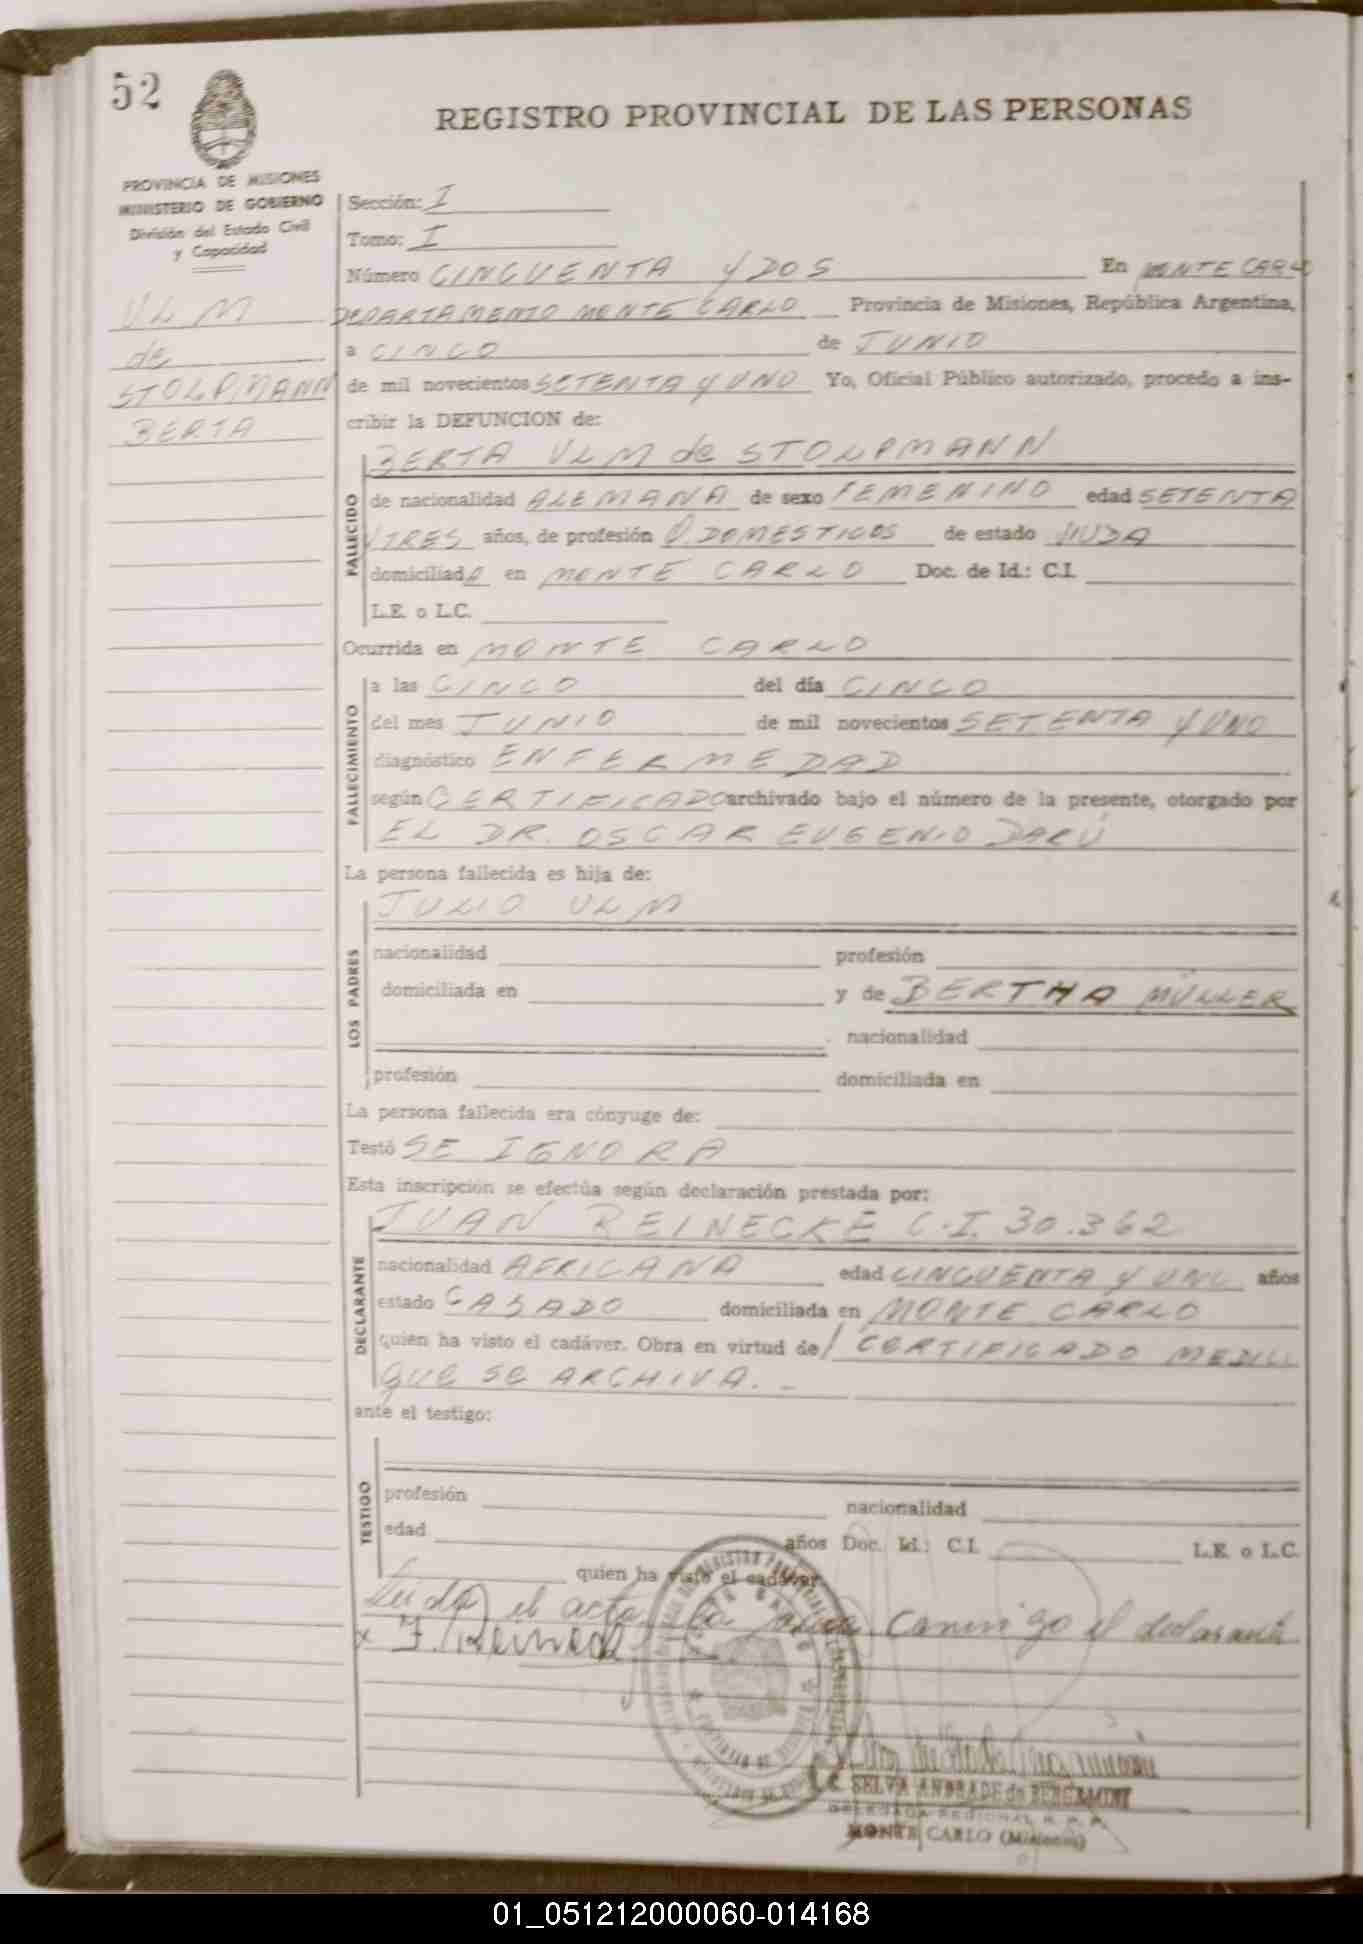 52
REGISTRO PROVINCIAL DE LAS PERSONAS
PROVINCIA DE MISIONES
MINISTERIO DE GOBIERNO
División del Estado Civil
y Capacidad
ULM
de
STOLPMANN
BERTA
Sección: I
Tomo: I
Número CINCUENTA Y DOS En MONTE CARLO
DEPARTAMENTO MONTE CARLO Provincia de Misiones, República Argentina,
a CINCO de JUNIO
de mil novecientos SETENTA Y UNO Yo, Oficial Público autorizado, procedo a ins-
cribir la DEFUNCION de:
BERTA ULM de STOLPMANN
FALLECIDO
de nacionalidad ALEMANA de sexo FEMENINO edad SETENTA
Y TRES años, de profesión Q. DOMESTICOS de estado VIUDA
domiciliada en MONTE CARLO Doc. de Id.: C.I.
L.E. o L.C.
Ocurrida en MONTE CARLO
FALLECIMIENTO
a las CINCO del día CINCO
del mes JUNIO de mil novecientos SETENTA Y UNO
diagnóstico ENFERMEDAD
según CERTIFICADO archivado bajo el número de la presente, otorgado por
EL DR. OSCAR EUGENIO DARÚ
La persona fallecida es hija de:
JULIO ULM
LOS PADRES
nacionalidad profesión
domiciliada en y de BERTHA MÜLLER
nacionalidad
profesión domiciliada en
La persona fallecida era cónyuge de:
Testó SE IGNORA
Esta inscripción se efectúa según declaración prestada por:
JUAN REINECKE C.I. 30.362
DECLARANTE
nacionalidad AFRICANA edad CINCUENTA Y UNO años
estado CASADO domiciliada en MONTE CARLO
quien ha visto el cadáver. Obra en virtud de / CERTIFICADO MEDICO
QUE SE ARCHIVA. -
ante el testigo:
TESTIGO
profesión nacionalidad
edad años Doc. Id.: C.I. L.E. o L.C.
quien ha visto el cadáver
Leida el acta la conmigo el declarante
x J. Reinecke
SELVA ANDRADE de BERGAMINI
DELEGADA REGIONAL R. P. P.
MONTE CARLO (Misiones)
01_051212000060-014168